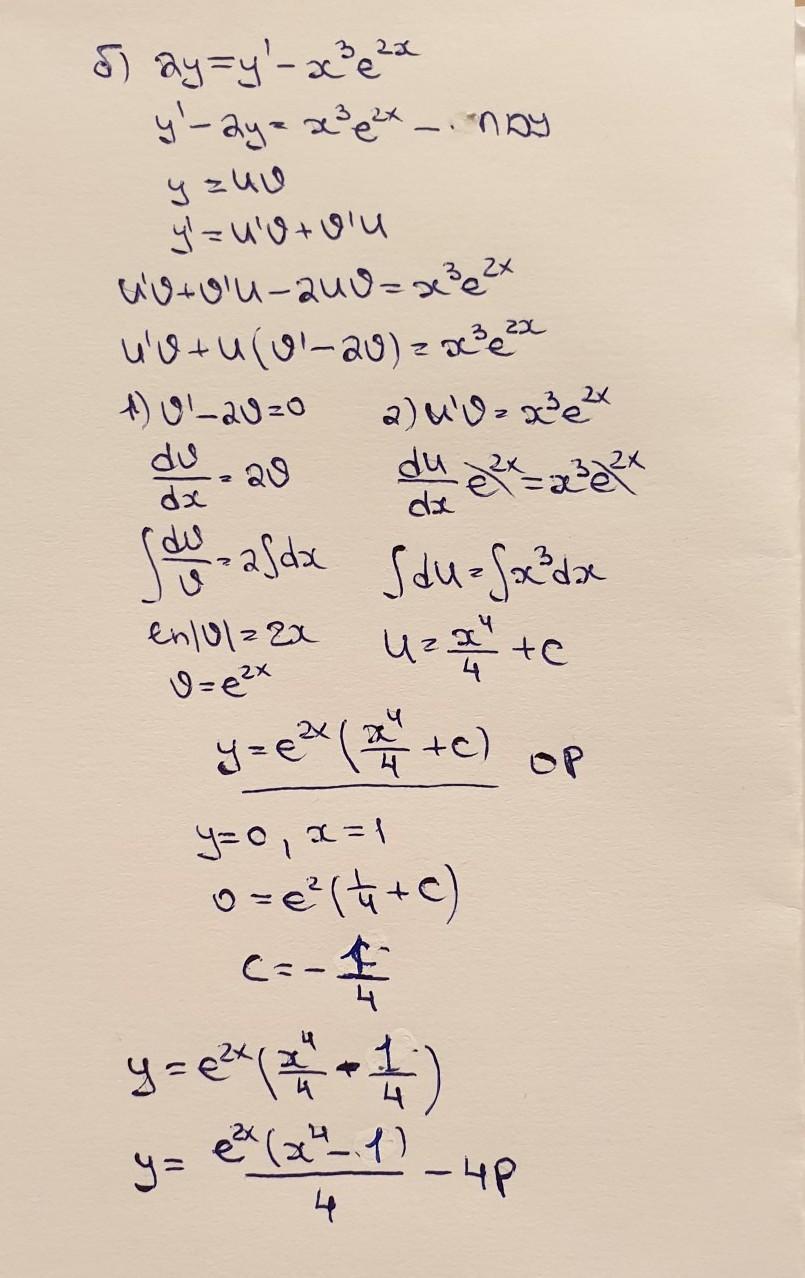 б) 2y=y'-x³e²ˣ
y'-2y=x³e²ˣ - ЛДУ
y=uv
y'=u'v+v'u
u'v+v'u-2uv=x³e²ˣ
u'v+u(v'-2v)=x³e²ˣ
1) v'-2v=0
dv/dx=2v
∫dv/v=2∫dx
ln|v|=2x
v=e²ˣ
2) u'v=x³e²ˣ
du/dx e²ˣ=x³e²ˣ
∫du=∫x³dx
u=x⁴/4+c
y=e²ˣ(x⁴/4+c) ОР
y=0, x=1
0=e²(1/4+c)
c=-1/4
y=e²ˣ(x⁴/4-1/4)
y=e²ˣ(x⁴-1)/4 - ЧР